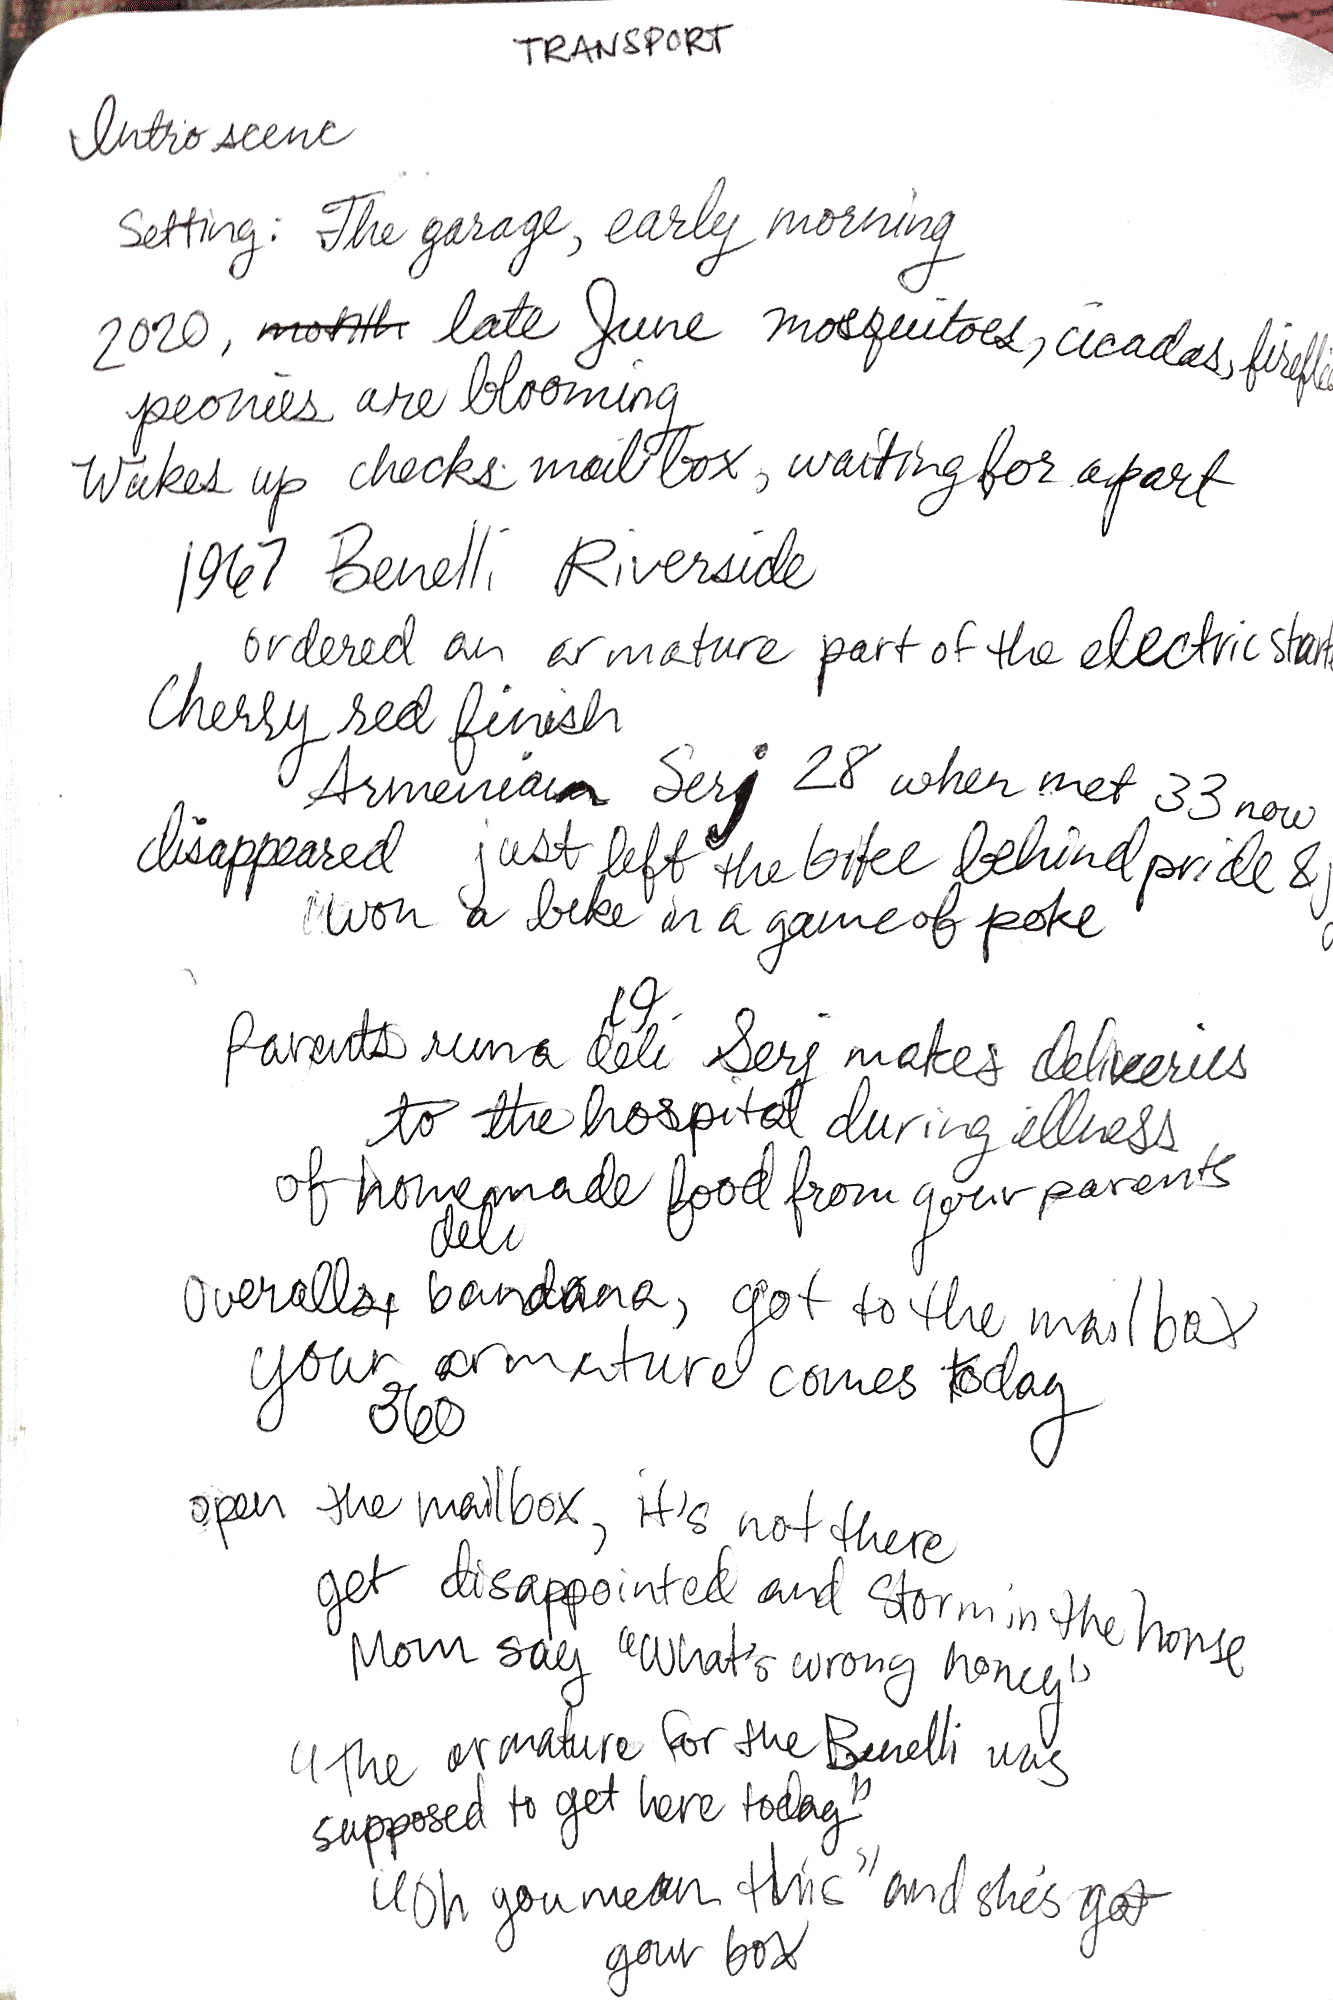 TRANSPORT
Intro scene
Setting: The garage, early morning
2020, month late June mosquitoes, cicadas, fireflies
peonies are blooming
Wakes up checks mailbox, waiting for a part
1967 Benelli Riverside
ordered an armature part of the electric start
Cherry red finish
Armenian Serj 28 when met 33 now
disappeared just left the bike behind pride &
won a bike in a game of poke
19
Parents run a deli Serj makes deliveries
to the hospital during illness
of homemade food from your parents
deli
Overalls, bandana, got to the mailbox
your armature comes today
360
open the mailbox, it's not there
get disappointed and storm in the house
Mom say "What's wrong honey"
"The armature for the Benelli was
supposed to get here today"
"Oh you mean this" and she's got
your box